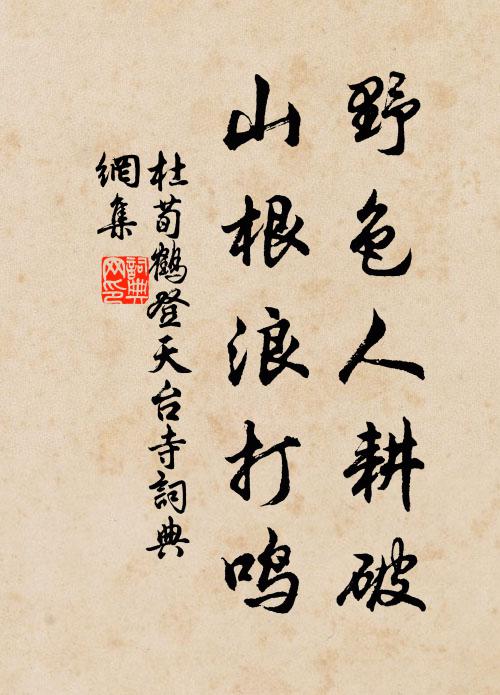 野色人耕破
山根浪打鸣
杜荀鶴登天台寺詞典
網集
詞典網印